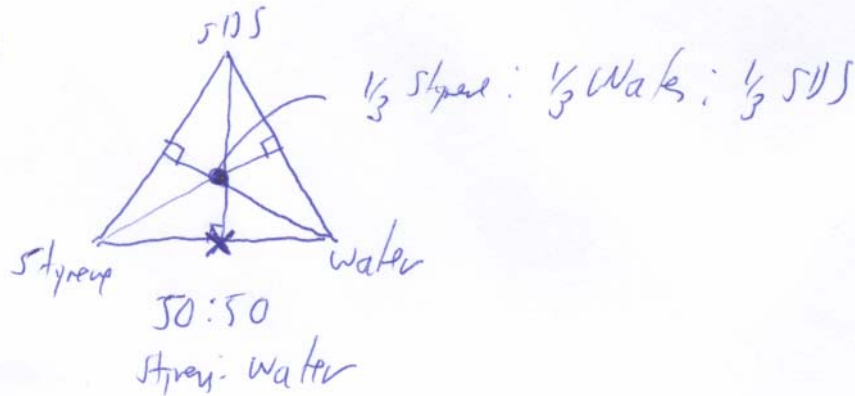 SDS
1/3 Styrene : 1/3 Water : 1/3 SDS
Styrene
Water
50:50
Styrene: Water